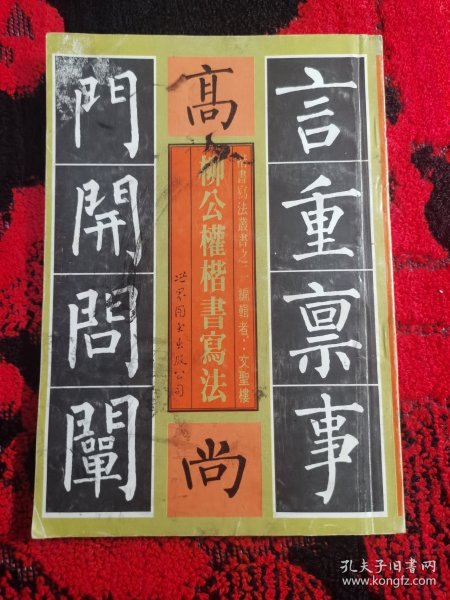 言重禀事
高
書寫法叢書之一 編輯者：文聖樓
柳公權楷書寫法
世界图书出版公司
尚
門開問闡
孔夫子旧书网
www.kongfz.com